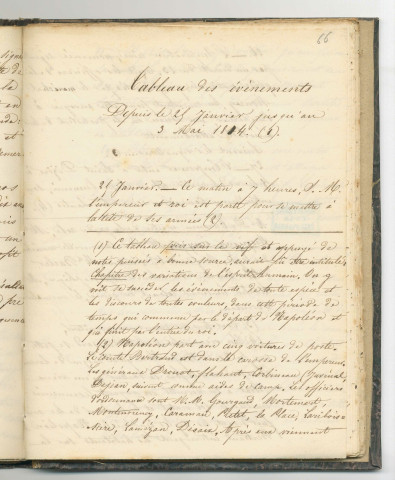 66
Tableau des événements
Depuis le 25 Janvier jusqu'au
3 Mai 1814. (1).
25 Janvier. — Ce matin à 7 heures, S. M.
l'empereur et roi est parti pour se mettre à
la tête de ses armées (2).
(1) Ce tableau pris sur le vif et appuyé de
notes puisées à bonne source, aurait pu être intitulé:
Chapitre des variations de l'esprit humain. On y
voit se succéder les événements de toute espèce et
les discours de toutes couleurs, dans cette période de
temps qui commence par le départ de Napoléon et
qui finit par l'entrée du roi.
(2) Napoléon part avec cinq voitures de poste.
Le comte Bertrand est dans le carrosse de l'empereur.
Les généraux Drouot, flahaut, Corbineau,
Dejean, suivent comme aides de camp. Les officiers
d'ordonnance sont M.M. Gourgaud, Mortemart,
Montmorency, Caraman, Pretet, la Place, Lariboi-
sière, Lamezan, Desaix. Après eux viennent